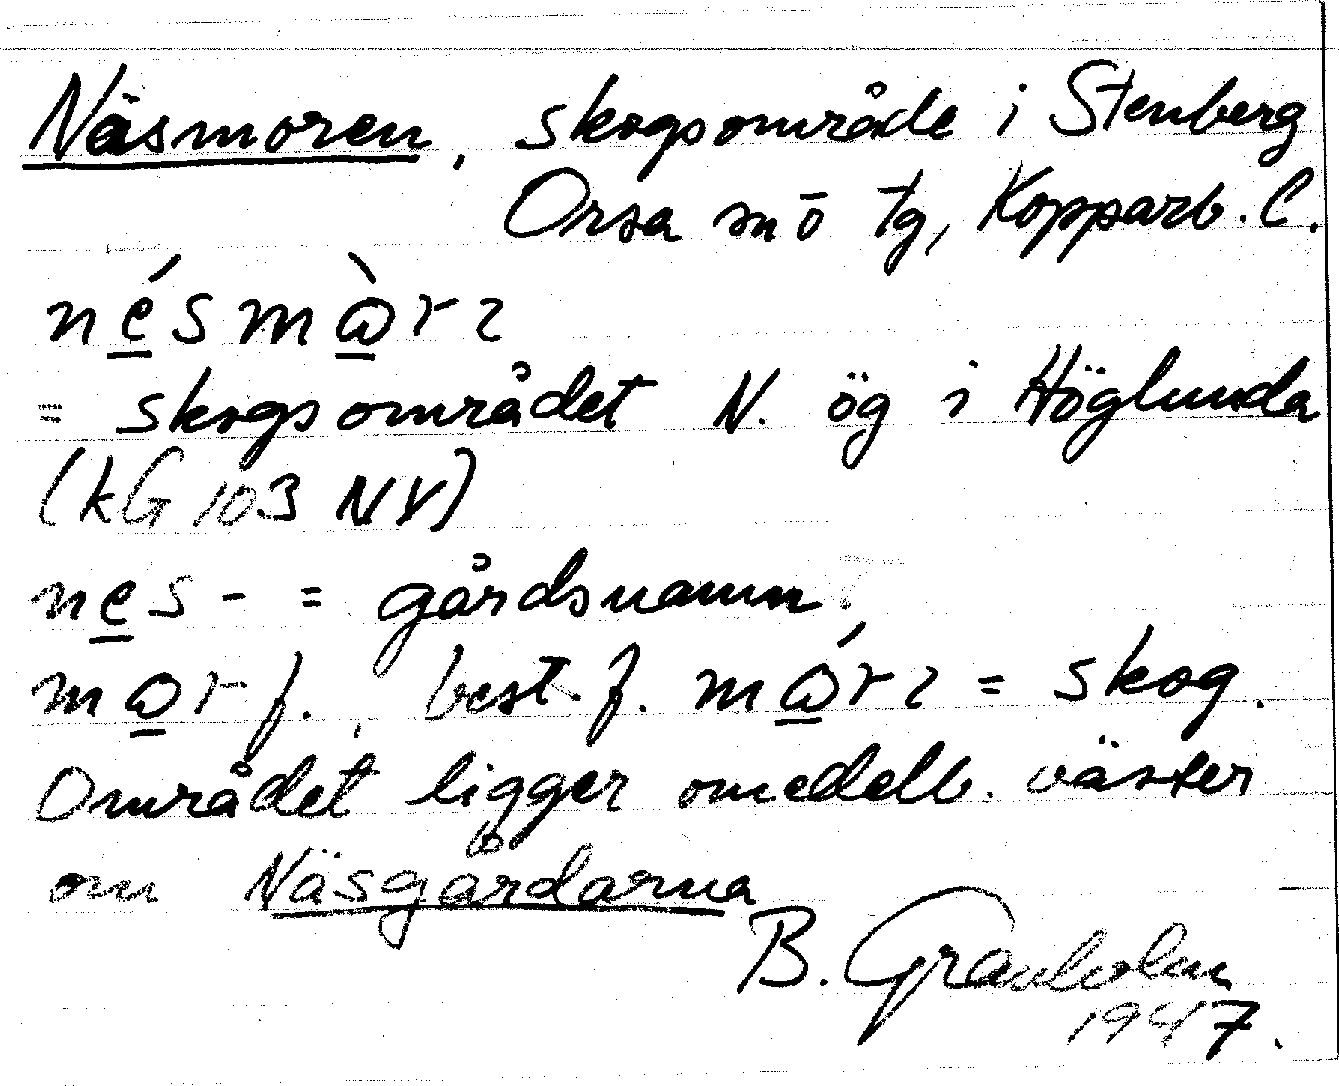 Näsmoren, skogsområde i Stenberg
Orsa sn ö tg, Kopparb. l.
nésmɷ̀rɿ
= skogsområdet N. ög i Höglunda
(kG 103 NV)
nes- = gårdsnamn.
mɷr f., best. f. mɷ́rɿ = skog.
Området ligger omedelb. väster
om Näsgårdarna
B. Granholm
1947.